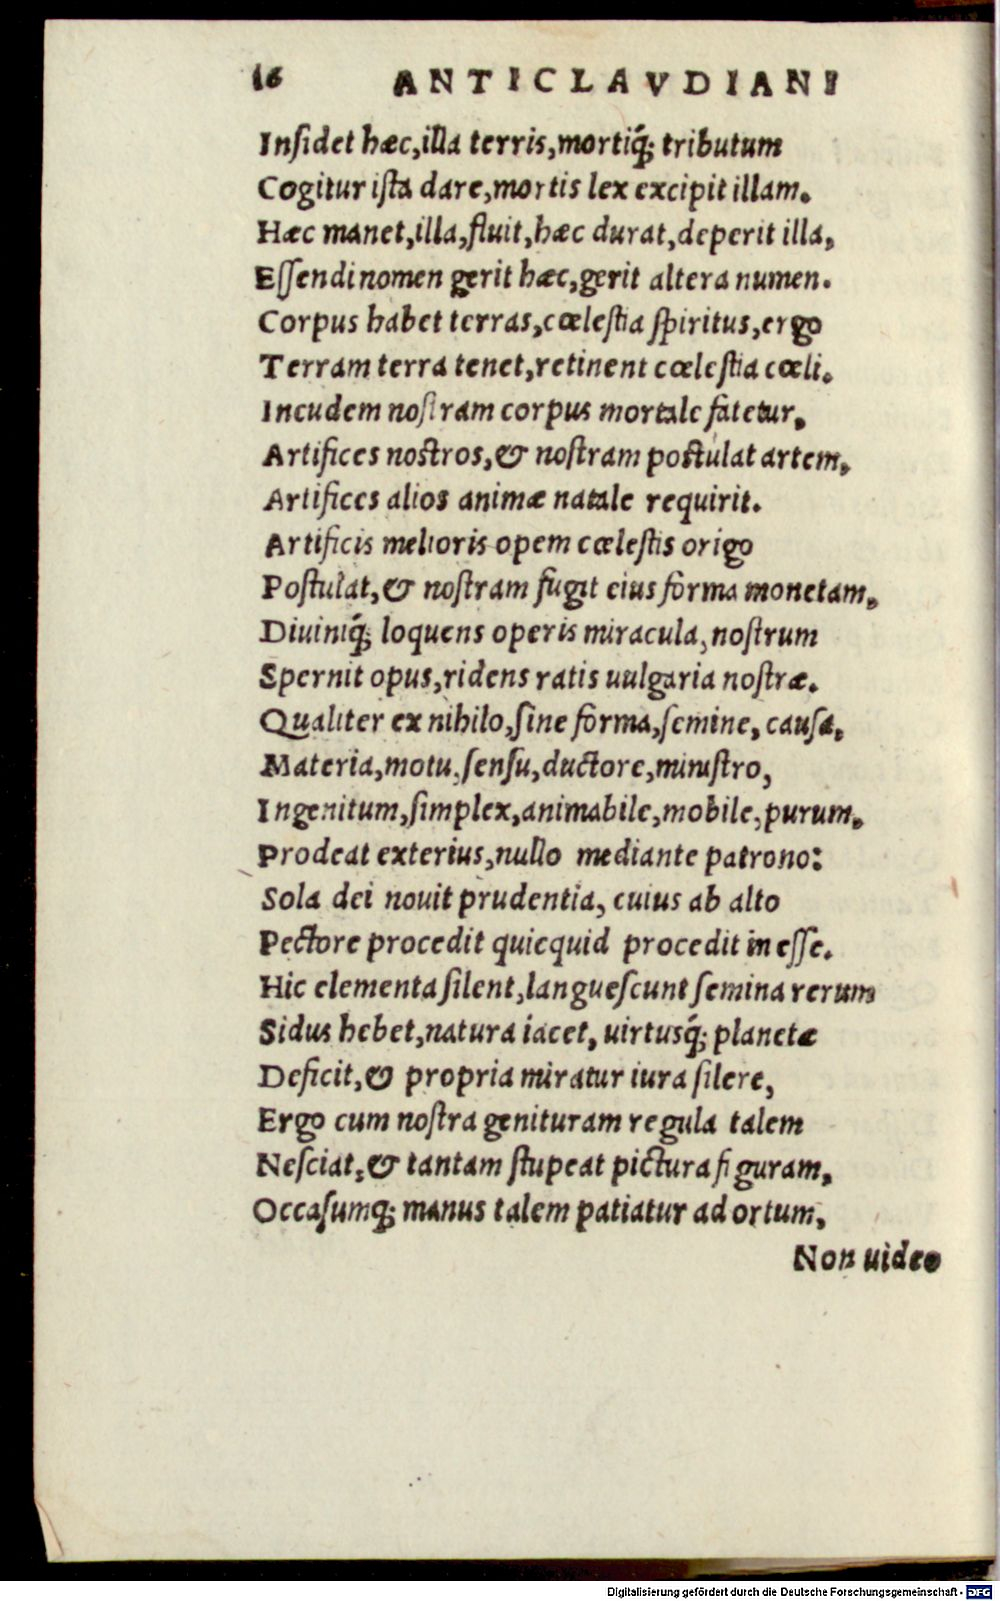 16 ANTICLAVDIANI
Insidet hæc,illa terris,mortiq́; tributum
Cogitur ista dare,mortis lex excipit illam.
Hæc manet,illa,fluit,hæc durat,deperit illa,
Essendi nomen gerit hæc,gerit altera numen.
Corpus habet terras,cœlestia spiritus,ergo
Terram terra tenet,retinent cœlestia cœli.
Incudem nostram corpus mortale fatetur,
Artifices nostros,& nostram postulat artem,
Artifices alios animæ natale requirit.
Artificis melioris opem cœlestis origo
Postulat,& nostram fugit eius forma monetam,
Diuiniq́; loquens operis miracula,nostrum
Spernit opus,ridens ratis uulgaria nostræ.
Qualiter ex nihilo,sine forma,semine, causa,
Materia,motu,sensu,ductore,ministro,
Ingenitum,simplex,animabile,mobile,purum,
Prodeat exterius,nullo mediante patrono:
Sola dei nouit prudentia, cuius ab alto
Pectore procedit quicquid procedit in esse.
Hic elementa silent,languescunt semina rerum
Sidus hebet,natura iacet, uirtusq́; planetæ
Deficit,& propria miratur iura silere,
Ergo cum nostra genituram regula talem
Nesciat,& tantam stupeat pictura figuram,
Occasumq; manus talem patiatur ad ortum,
Non uideo
Digitalisierung gefördert durch die Deutsche Forschungsgemeinschaft - DFG